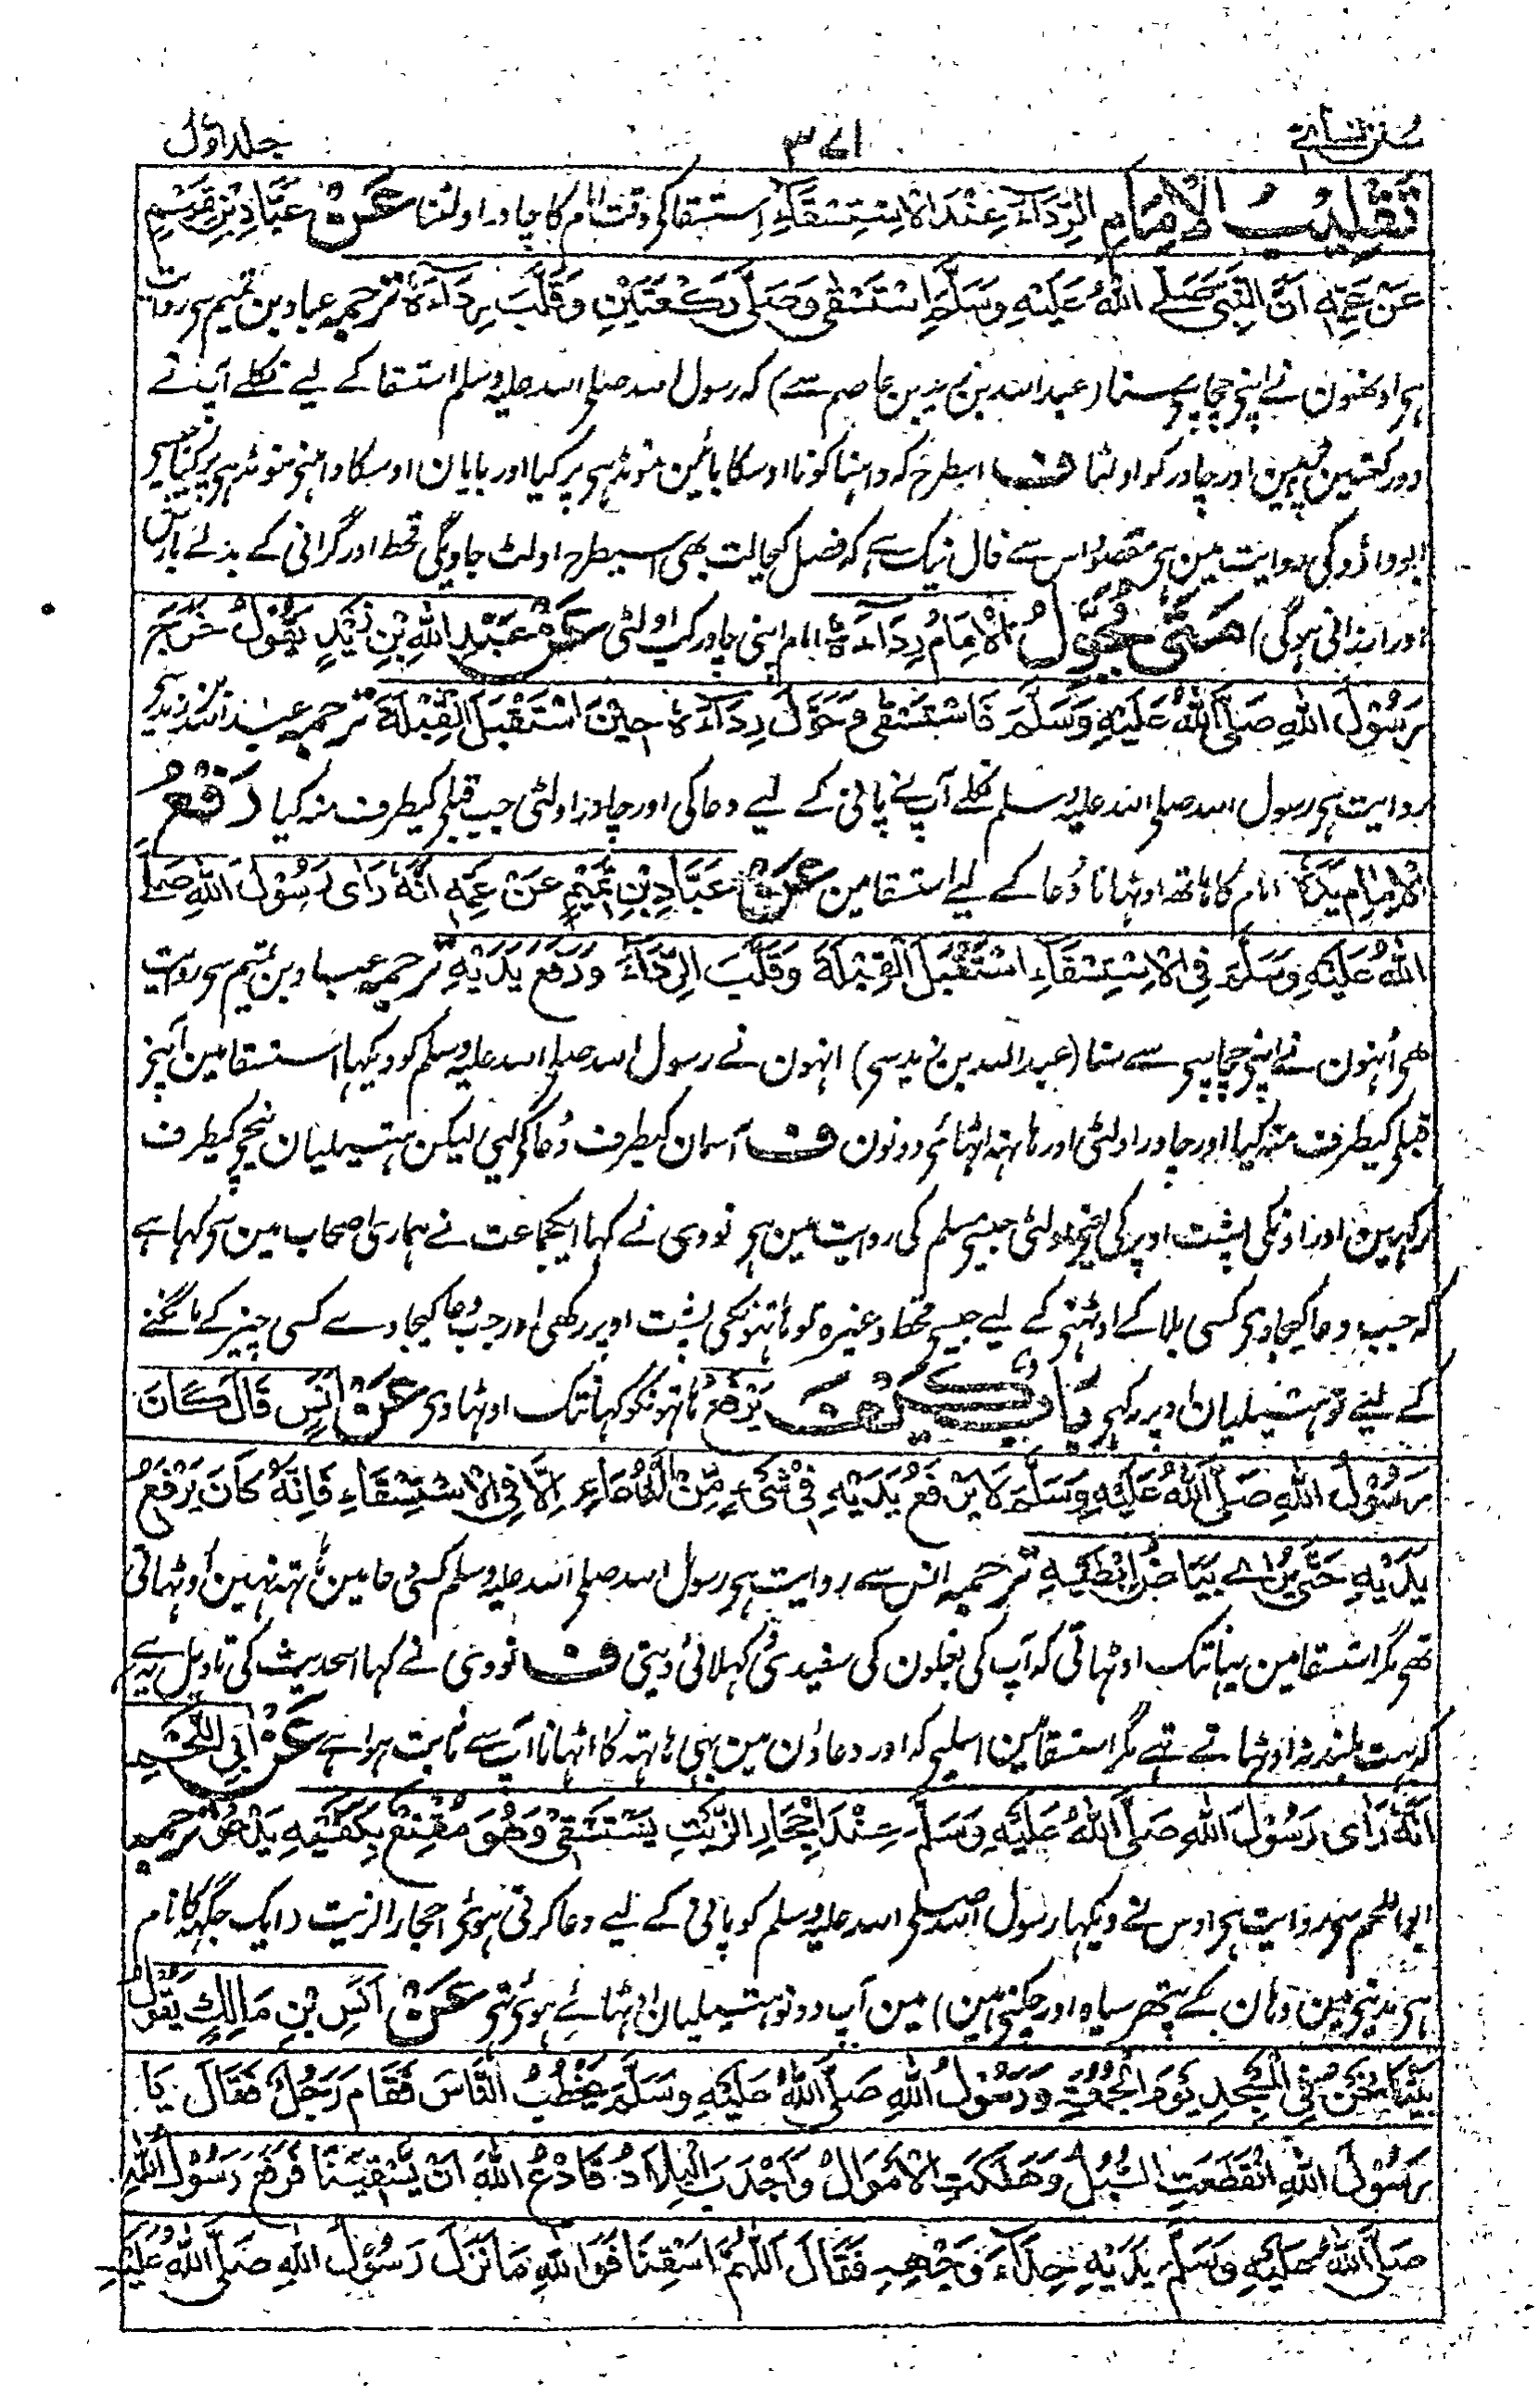 سنن نسائی ۳۷۱ جلد اول
تَقْلِيْبُ الْاِمَامِ الرِّدَاءَ عِنْدَ الْاِسْتِسْقَاءِ استسقا کی وقت امام کا چادر اولٹنا عَنْ عَبَّادِ بْنِ تَمِيْمٍ
عَنْ عَمِّهٖ اَنَّ النَّبِيَّ صَلَّے اللّٰهُ عَلَيْهِ وَسَلَّمَ اسْتَسْقٰى وَصَلّٰى رَكْعَتَيْنِ وَقَلَّبَ رِدَاءَهٗ ترجمہ عباد بن تمیم سی روایت
ہی اونھون نے اپنی چچا سی سنا (عبد اللہ بن زید بن عاصم سے) کہ رسول اللہ صلی اللہ علیہ وسلم استسقا کے لیے نکلے آپ نے
دو رکعتین پڑہین اور چادر کو اولٹا ف اسطرح کہ داہنا کونا اوسکا بائین مونڈہی پر کیا اور بایان اوسکا داہنی مونڈہی پر کیا جیسی
ابو داؤد کی روایت مین ہی مقصود اس سے فال نیک ہے کہ فصل کیحالت بھی اسیطرح اولٹ جاویگی قحط اور گرانی کے بدلے بارش
اور ارزانی ہوگی) مَتٰى يُحَوِّلُ الْاِمَامُ رِدَاءَهٗ امام اپنی چادر کب اولٹی عَنْ عَبْدِ اللّٰهِ بْنِ زَيْدٍ يَقُوْلُ خَرَجَ
رَسُوْلُ اللّٰهِ صَلَّى اللّٰهُ عَلَيْهِ وَسَلَّمَ فَاسْتَسْقٰى وَحَوَّلَ رِدَاءَهٗ حِيْنَ اسْتَقْبَلَ الْقِبْلَةَ ترجمہ عبد اللہ بن زید سی
روایت ہی رسول اللہ صلی اللہ علیہ وسلم نکلے آپ نے پانی کے لیے دعا کی اور چادر اولٹی جب قبلہ کیطرف منہ کیا رَفْعُ
الْاِمَامِ يَدَهٗ امام کا ہاتھ اوٹہانا دعا کے لیے استسقا مین عَنْ عَبَّادِ بْنِ تَمِيْمٍ عَنْ عَمِّهٖ اَنَّهٗ رَاٰى رَسُوْلَ اللّٰهِ صَلَّے
اللّٰهُ عَلَيْهِ وَسَلَّمَ فِى الْاِسْتِسْقَاءِ اسْتَقْبَلَ الْقِبْلَةَ وَقَلَّبَ الرِّدَاءَ وَرَفَعَ يَدَيْهِ ترجمہ عباد بن تمیم سی روایت
ھی اُنہون نے اپنی چچا سے سنا (عبد اللہ بن زید سی) انہون نے رسول اللہ صلی اللہ علیہ وسلم کو دیکہا استسقا مین آپنے
قبلہ کیطرف منہ کیا اور چادر اولٹی اور ہاتہہ اٹہائی دونون ف آسمان کیطرف دعا کی لیی لیکن ہتھیلیان نیچی کیطرف
رکہین اور اونکی پشت اوپر کی یعنی اولٹی جیسی مسلم کی روایت مین ہی نووی نے کہا ایکجماعت نے ہماری اصحاب مین سی کہا ہے
کہ جب دعا کیجاوی کسی بلا کے اوٹہنی کے لیے جیسی قحط وغیرہ تو ہاتہونکی پشت اوپر رکھی اور جب دعا کیجاوے کسی چیز کے مانگنے
کے لیئے تو ہتھیلیان اوپر رکہی كَيْفَ يَرْفَعُ ہاتہونکو کہانتک اوٹہاوی عَنْ اَنَسٍ قَالَ كَانَ
رَسُوْلُ اللّٰهِ صَلَّى اللّٰهُ عَلَيْهِ وَسَلَّمَ لَا يَرْفَعُ يَدَيْهِ فِيْ شَيْءٍ مِّنَ الدُّعَاءِ اِلَّا فِى الْاِسْتِسْقَاءِ فَاِنَّهٗ كَانَ يَرْفَعُ
يَدَيْهِ حَتّٰى يُرٰے بَيَاضُ اِبْطَيْهِ ترجمہ انس سے روایت ہی رسول اللہ صلی اللہ علیہ وسلم کسی دعا مین ہاتہہ نہین اوٹہاتی
تھی مگر استسقا مین یہانتک اوٹہاتی کہ آپ کی بغلون کی سفیدی کہلائی دیتی ف نووی نے کہا اسحدیث کی تاویل یہ ہے
کہ بہت بلند نہ اوٹہاتے تہے مگر استسقا مین اسلیی کہ اور دعاؤن مین بہی ہاتہہ کا اٹہانا آپ سے ثابت ہوا ہے عَنْ اٰبِي اللَّحْمِ
اَنَّهٗ رَاٰى رَسُوْلَ اللّٰهِ صَلَّى اللّٰهُ عَلَيْهِ وَسَلَّمَ عِنْدَ اَحْجَارِ الزَّيْتِ يَسْتَسْقِيْ وَهُوَ مُقْنِعٌ بِكَفَّيْهِ يَدْعُوْ ترجمہ
ابو اللحم سی روایت ہی اوس نے دیکہا رسول اللہ صلی اللہ علیہ وسلم کو پانی کے لیے دعا کرتی ہوئی احجار الزیت (ایک جگہہ کا نام
ہی مدینی مین وہان کے پتھر سیاہ اور چکنی ہین) مین آپ دونو ہتھیلیان اوٹہائے ہوئی تہی عَنْ اَنَسِ بْنِ مَالِكٍ يَقُوْلُ
بَيْنَا نَحْنُ فِي الْمَسْجِدِ يَوْمَ الْجُمُعَةِ وَرَسُوْلُ اللّٰهِ صَلَّى اللّٰهُ عَلَيْهِ وَسَلَّمَ يَخْطُبُ النَّاسَ فَقَامَ رَجُلٌ فَقَالَ يَا
رَسُوْلَ اللّٰهِ انْقَطَعَتِ السُّبُلُ وَهَلَكَتِ الْاَمْوَالُ وَاَجْدَبَ الْبِلَادُ فَادْعُ اللّٰهَ اَنْ يَّسْقِيَنَا فَرَفَعَ رَسُوْلُ اللّٰهِ
صَلَّى اللّٰهُ عَلَيْهِ وَسَلَّمَ يَدَيْهِ حِذَاءَ وَجْهِهٖ فَقَالَ اَللّٰهُمَّ اسْقِنَا فَوَ اللّٰهِ مَا نَزَلَ رَسُوْلُ اللّٰهِ صَلَّى اللّٰهُ عَلَيْهِ